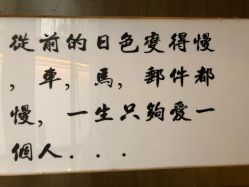 從前的日色變得慢
，車，馬，郵件都
慢，一生只夠愛一
個人．．．